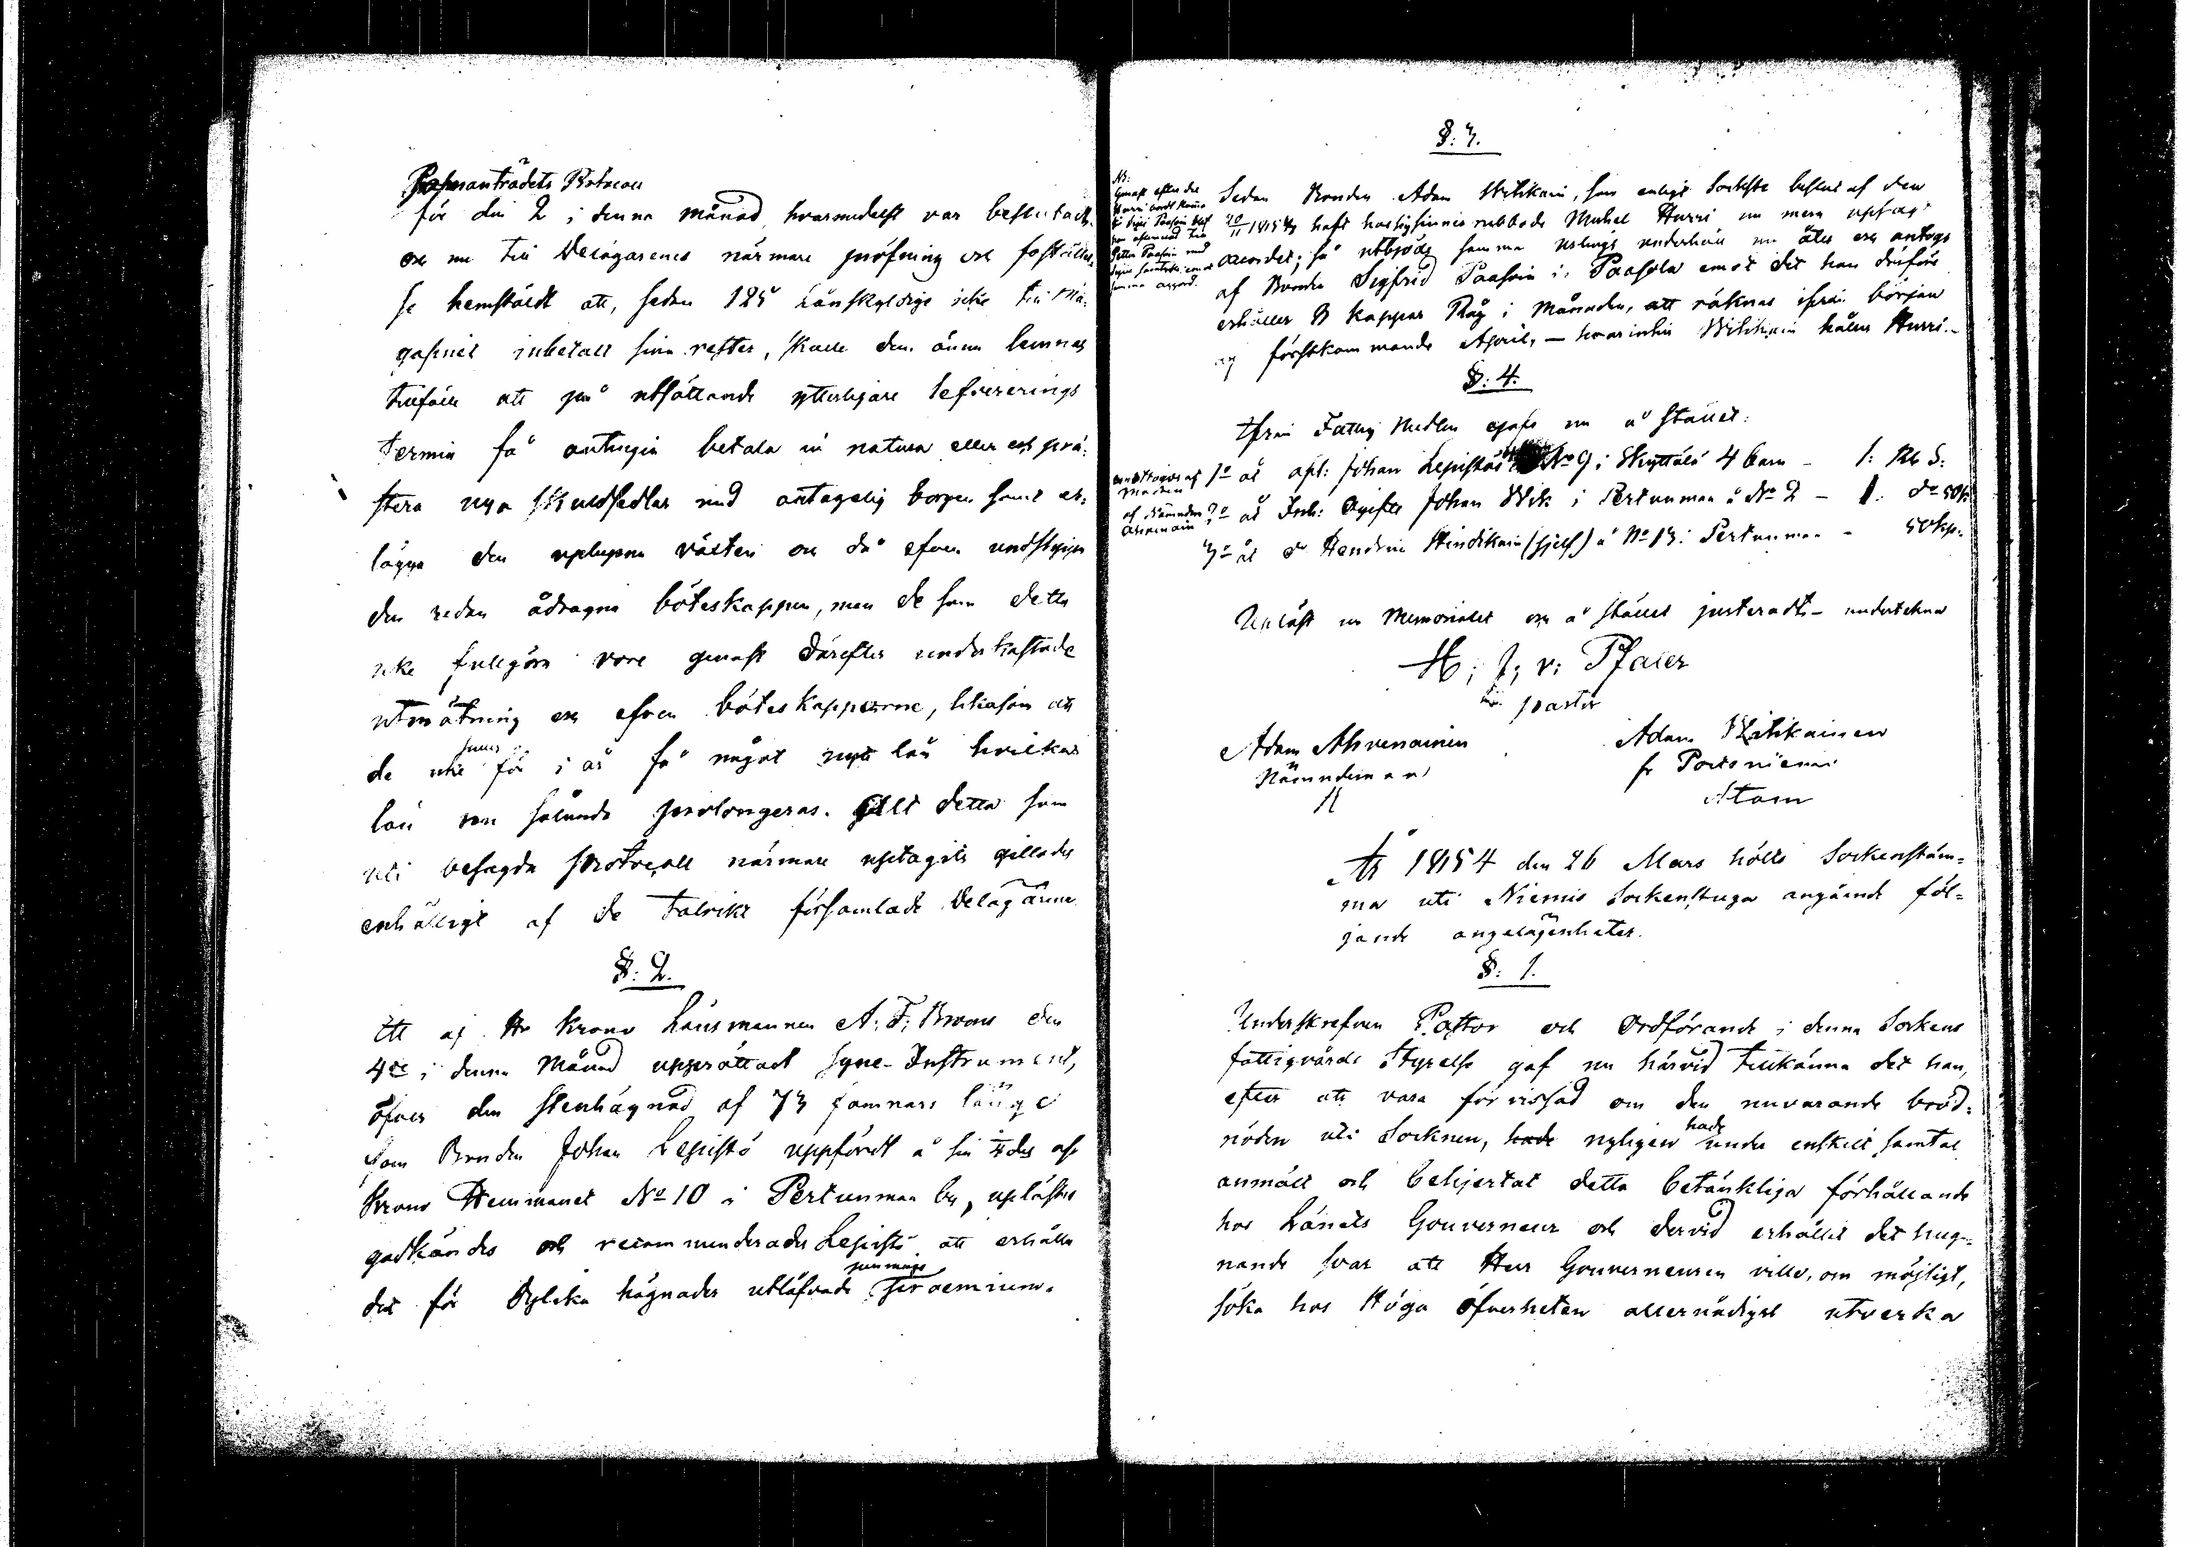 Sammanträdets Protocoll
för den 2 i denna månad hvarmedelst var beslutadt
och nu till Delägarenes närmare pröfning och fastställel-
se hemstäldt att, sedan 125 Lånskyldige icke till Ma-
gasinet inbetalt sina rester, skulle dem ännu lemnas
tillfälle att på utsättande ytterligare lefvererings
termin få antingen betala in natura eller ock præ-
stera nya skuldsedlar med antagelig borgen samt er-
lägga den uplupna växten och då efven undslippa
den redan ådragna böteskappen, men de som detta
icke fullgöra vore genast därefter underkastade
utmätning och efven böteskapparne, likasom att
de icke för i år få något nytt lån hvilkas
lån nu sålunda prolongeras. Allt detta som
uti besagda protocoll närmare uptagits gillades
enhälligt af de talrikt församlade Delägarne
§: 2.
Ett af Hr Krono Länsmannen A: F: Brons den
4de i denna Månad upprättadt Syne-Instrument,
öfver den stenhägnad af 73 famnars längd
som Bonden Johan Lepistö uppfördt å sin dels af
Krono Hemmanet No 10 i Pertunmaa by, uplästes
godkändes och recommenderades Lepistö att erhålla
det för dylika hägnader utläfvade præmium.
§: 3.
Sedan Bonden Adam Vitikain, som enligt Sockne beslut af den
20/11 1853 haft hos sig sinnesrubbade Michel Hurri nu mera upsagt
accordet; så utbjöds samma uslings underhåll nu åter och antogs
af Bonden Sigfrid Paasoin i Paasola emot det han derföre
erhåller 8 kappar Råg i Månaden, att räknas ifrån början
af förstkommande April, — hvarintill Vitikain håller Hurri.
§: 4.
Ifrån Fattig Medlen gafs nu å stället:
1o åt afl: Johan Lepistös No 9 i Skyttälä 4 barn - 1: Rb S:
2o åt Inh: Johan Wik i Pertunmaa å No 2 - 1. do 50 k
3o åt do Hendrik Hindikain (sjelf) å No 13 i Pertunmaa - 50 kp.
Upläst Memorialet och å stället justeradt - undertekna
H; J; v; Pfaler
pastor
Adam Ahvenainen
Nämndeman
Adam Vitikainen
fr Portsniemi
År 1854 den 26 Mars hölts Sockenstäm-
ma uti Niemis Sockenstuga angående föl-
jande angelägenheter.
§: 1.
Underskrefven Pastor och Ordförande i denna Sockens
fattigvårds Styrelse gaf nu härvid tillkänna det han,
efter att vara förvissad om den nuvarande bröd-
nöden uti Socknen, hade nyligen hade under enskilt samtal
anmält och behjertat detta betänkliga förhållande
hos Länets Gouverneur och dervid erhållit det hug-
nande svar att Herr Gouverneuren ville, om möjligt,
söka hos Höga Öfverheten allernådigst utverka